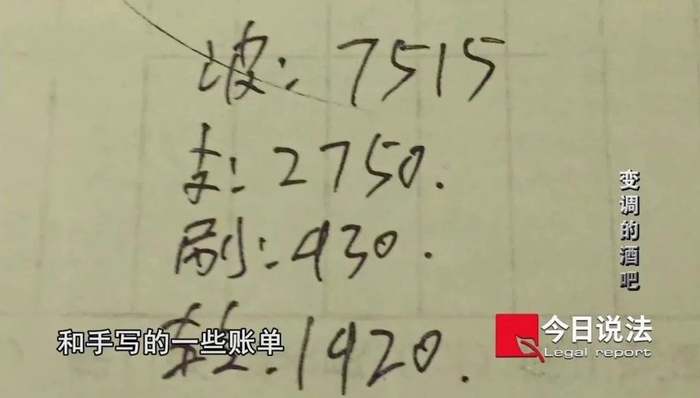 波：7515
支：2750.
刷：430.
1920.
和手写的一些账单
变调的酒吧
今日说法
Legal report